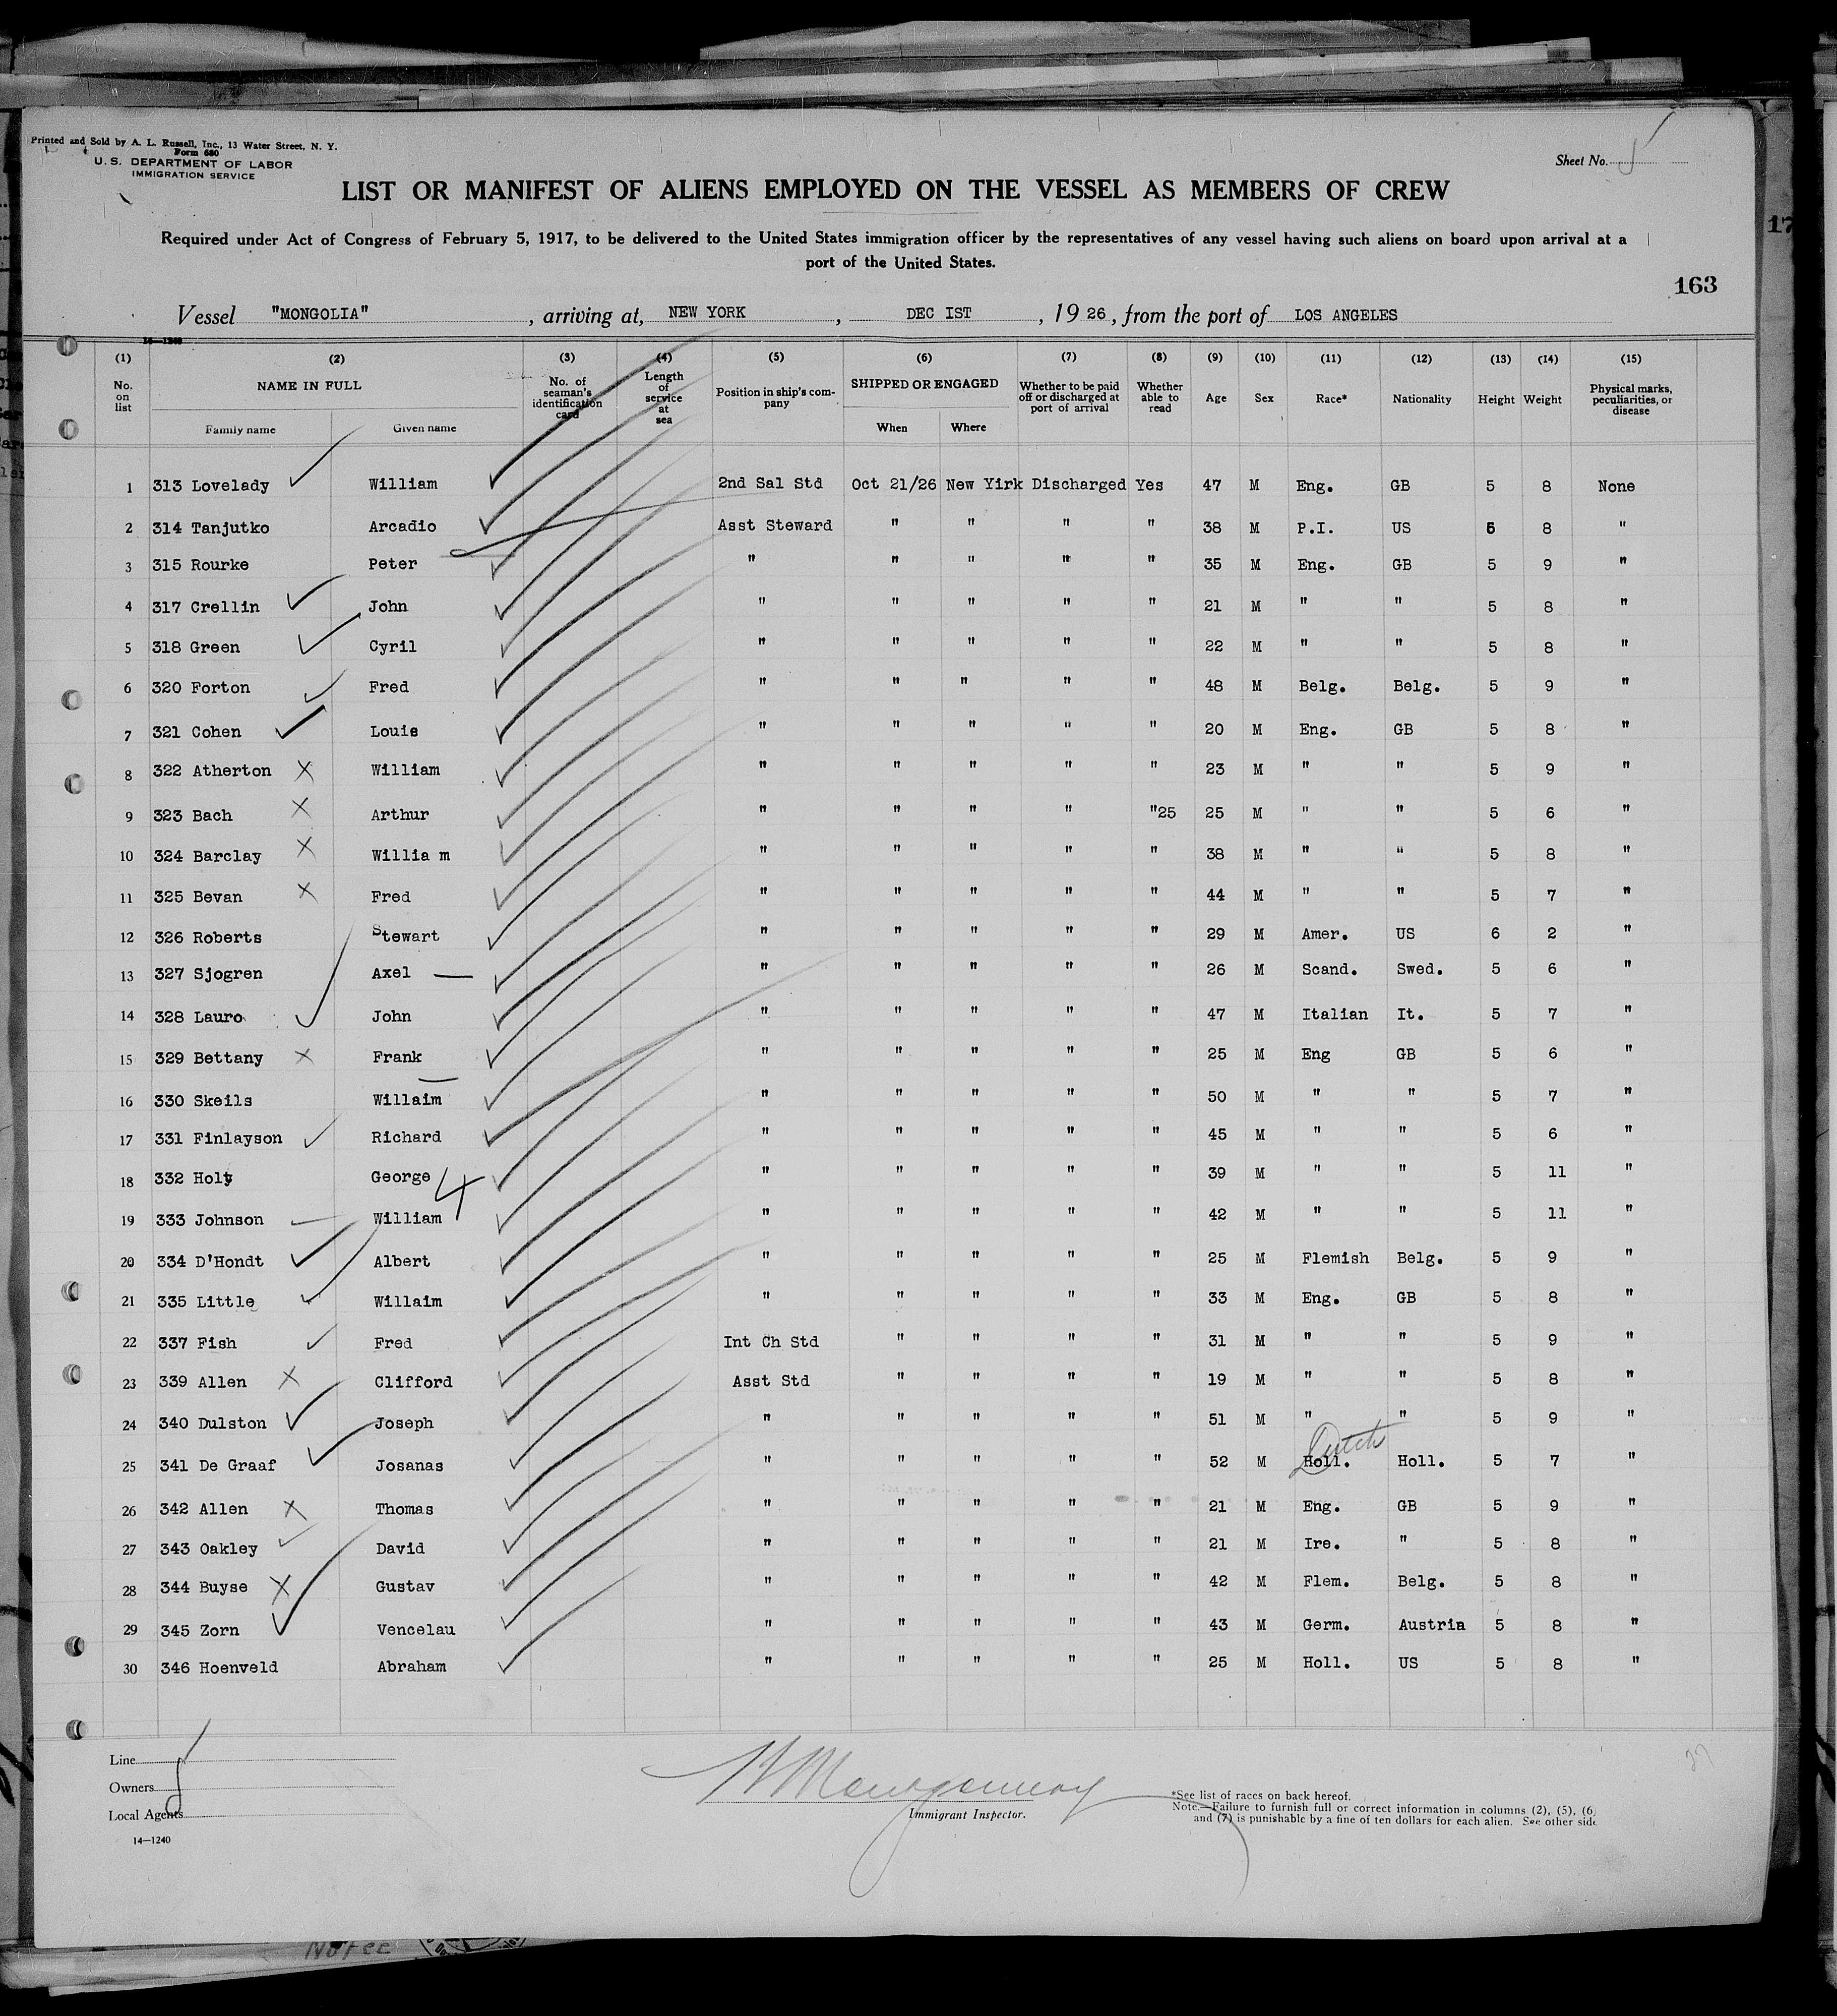 Printed and Sold by A. L. Russell, Inc., 13 Water Street, N. Y.
Form 680
U.S. DEPARTMENT OF LABOR
IMMIGRATION SERVICE
Sheet No.
LIST OR MANIFEST OF ALIENS EMPLOYED ON THE VESSEL AS MEMBERS OF CREW
Required under Act of Congress of February 5, 1917, to be delivered to the United States immigration officer by the representatives of any vessel having such aliens on board upon arrival at a
port of the United States.
163
Vessel "MONGOLIA", arriving at, NEW YORK, DEC IST, 19 26, from the port of LOS ANGELES
(1) (2) (3) (4) (5) (6) (7) (8) (9) (10) (11) (12) (13) (14) (15)
No. on list NAME IN FULL Family name Given name No. of seaman's identification card Length of service at sea Position in ship's company SHIPPED OR ENGAGED When Where Whether to be paid off or discharged at port of arrival Whether able to read Age Sex Race* Nationality Height Weight Physical marks, peculiarities, or disease
1 313 Lovelady William 2nd Sal Std Oct 21/26 New Yirk Discharged Yes 47 M Eng. GB 5 8 None
2 314 Tanjutko Arcadio Asst Steward " " " " 38 M P.I. US 5 8 "
3 315 Rourke Peter " " " " " 35 M Eng. GB 5 9 "
4 317 Crellin John " " " " " 21 M " " 5 8 "
5 318 Green Cyril " " " " " 22 M " " 5 8 "
6 320 Forton Fred " " " " " 48 M Belg. Belg. 5 9 "
7 321 Cohen Louis " " " " " 20 M Eng. GB 5 8 "
8 322 Atherton William " " " " " 23 M " " 5 9 "
9 323 Bach Arthur " " " " "25 25 M " " 5 6 "
10 324 Barclay Willia m " " " " " 38 M " " 5 8 "
11 325 Bevan Fred " " " " " 44 M " " 5 7 "
12 326 Roberts Stewart " " " " " 29 M Amer. US 6 2 "
13 327 Sjogren Axel " " " " " 26 M Scand. Swed. 5 6 "
14 328 Lauro John " " " " " 47 M Italian It. 5 7 "
15 329 Bettany Frank " " " " " 25 M Eng GB 5 6 "
16 330 Skeils Willaim " " " " " 50 M " " 5 7 "
17 331 Finlayson Richard " " " " " 45 M " " 5 6 "
18 332 Holt George " " " " " 39 M " " 5 11 "
19 333 Johnson William " " " " " 42 M " " 5 11 "
20 334 D'Hondt Albert " " " " " 25 M Flemish Belg. 5 9 "
21 335 Little Willaim " " " " " 33 M Eng. GB 5 8 "
22 337 Fish Fred Int Ch Std " " " " 31 M " " 5 9 "
23 339 Allen Clifford Asst Std " " " " 19 M " " 5 8 "
24 340 Dulston Joseph " " " " " 51 M " " 5 9 "
Dutch
25 341 De Graaf Josanas " " " " " 52 M Holl. Holl. 5 7 "
26 342 Allen Thomas " " " " " 21 M Eng. GB 5 9 "
27 343 Oakley David " " " " " 21 M Ire. " 5 8 "
28 344 Buyse Gustav " " " " " 42 M Flem. Belg. 5 8 "
29 345 Zorn Vencelau " " " " " 43 M Germ. Austria 5 8 "
30 346 Hoenveld Abraham " " " " " 25 M Holl. US 5 8 "
Line
Owners
Local Agents
14—1240
Montgomery
Immigrant Inspector.
*See list of races on back hereof.
Note.—Failure to furnish full or correct information in columns (2), (5), (6)
and (7) is punishable by a fine of ten dollars for each alien. See other side